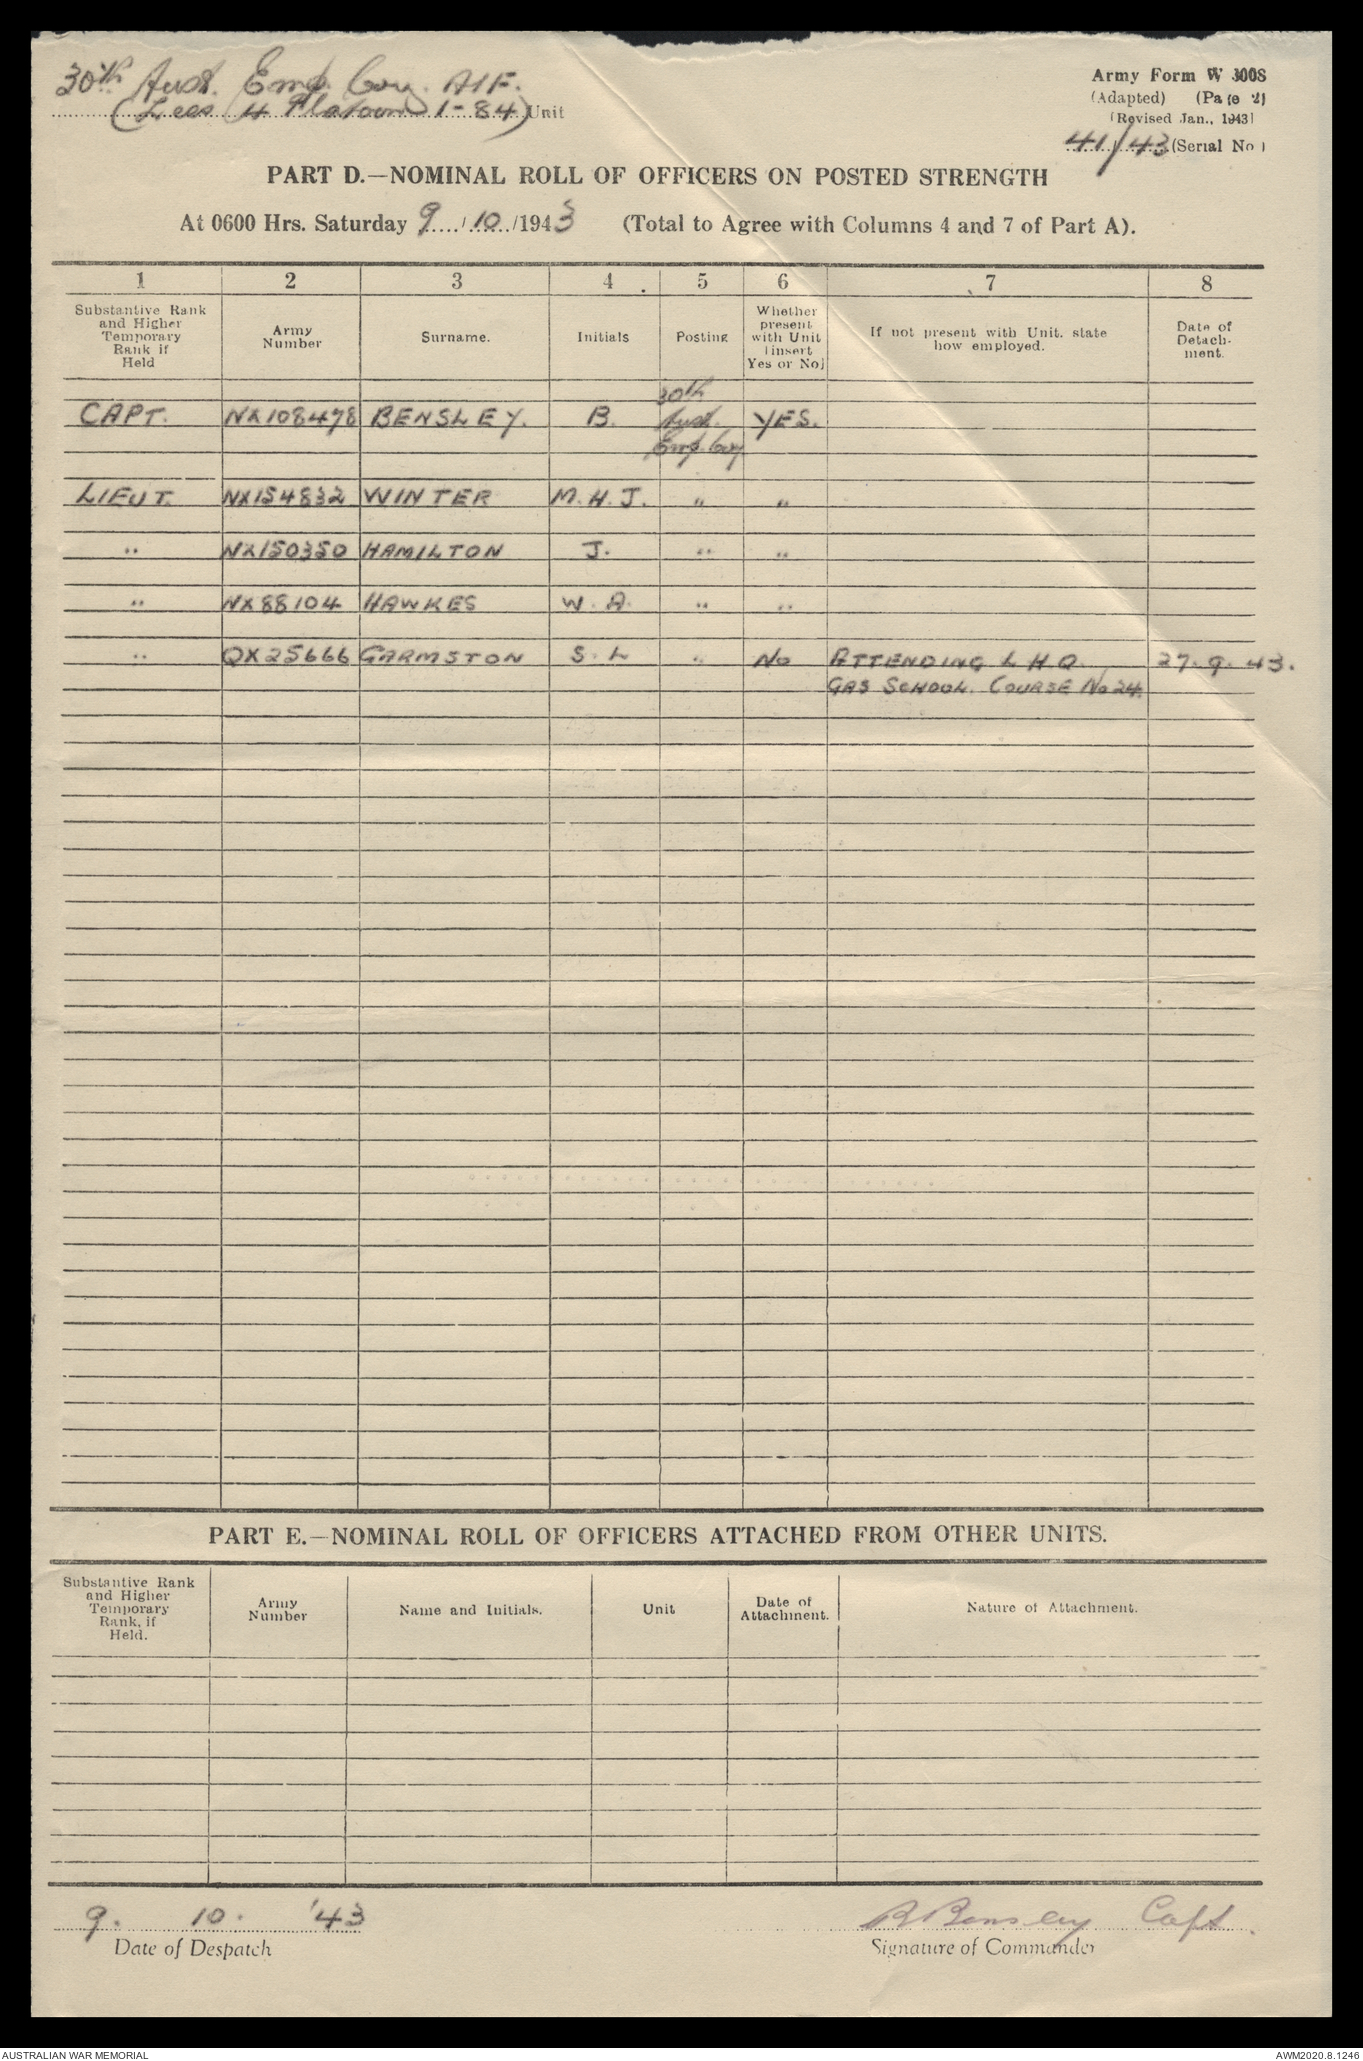 30th Aust. Emp. Coy. AIF.
(Less 4 Platoons 1-84) Unit
Army Form W 3008
(Adapted) (Page 2)
(Revised Jan., 1943)
41/43 (Serial No.)
PART D.—NOMINAL ROLL OF OFFICERS ON POSTED STRENGTH
At 0600 Hrs. Saturday 9/10/1943 (Total to Agree with Columns 4 and 7 of Part A).
1 2 3 4 5 6 7 8
Substantive Rank and Higher Temporary Rank if Held
Army Number
Surname.
Initials
Posting
Whether present with Unit (insert Yes or No)
If not present with Unit, state how employed.
Date of Detachment.
CAPT. NX108478 BENSLEY. B. 30th Aust. Emp. Coy YES.
LIEUT. NX154832 WINTER M.H.J. " "
" NX150350 HAMILTON J. " "
" NX88104 HAWKES W.A. " "
" QX25666 GARMSTON S.L " No ATTENDING L H Q. 27.9.43.
GAS SCHOOL. COURSE No 24.
PART E.—NOMINAL ROLL OF OFFICERS ATTACHED FROM OTHER UNITS.
Substantive Rank and Higher Temporary Rank, if Held.
Army Number
Name and Initials.
Unit
Date of Attachment.
Nature of Attachment.
9. 10. '43
Date of Despatch
B Bensley Capt.
Signature of Commander
AUSTRALIAN WAR MEMORIAL
AWM2020.8.1246